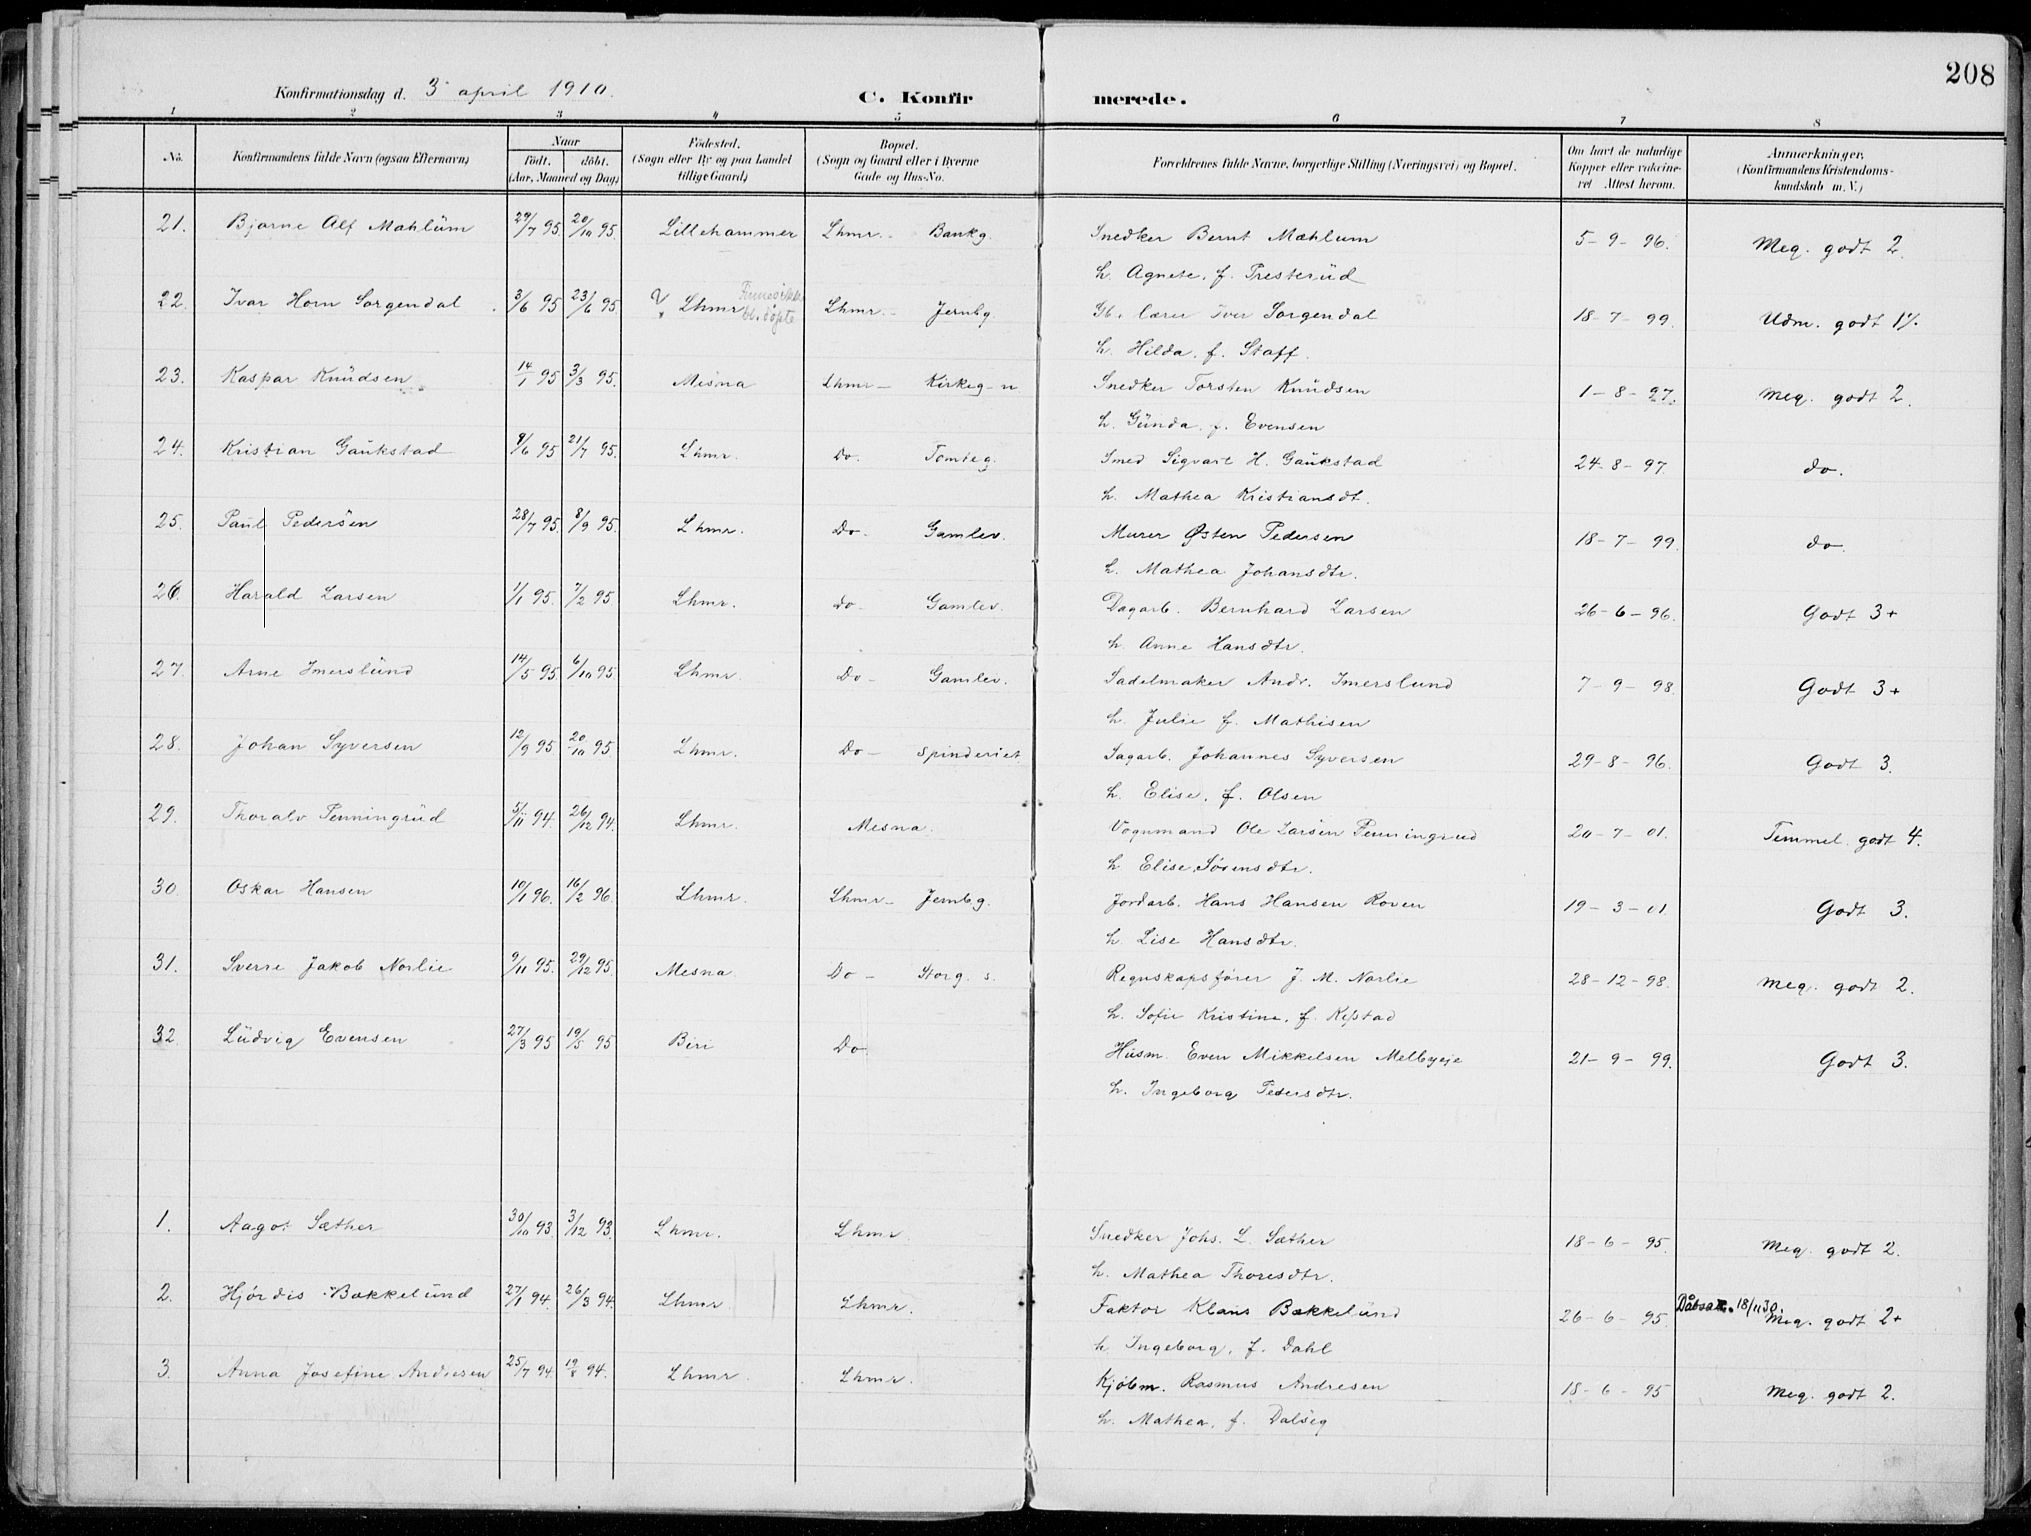 208
Konfirmationsdag d. 3 april 1910. C. Konfir merede.
1 2 3 4 5 6 7 8
No. Konfirmandens fulde Navn (ogsaa Efternavn) Naar født. døbt. (Aar, Maaned og Dag) Fødested. (Sogn eller By og paa Landet tillige Gaard) Bopæl. (Sogn og Gaard eller i Byerne Gade og Hus-No. Forældrenes fulde Navne, borgerlige Stilling (Næringsvei) og Bopæl. Om havt de naturlige Kopper eller vakcineret Attest herom. Anmærkninger. (Konfirmandens Kristendomskundskab m. V.)
21. Bjarne Alf Mæhlum 29/7 95. 20/10 95. Lillehammer Lhmr. - Bankg. Snedker Bernt Mæhlum 5-9-96. Meg. godt 2.
h. Agnete, f. Presterud
22. Ivar Horn Sorgendal 3/6 95 23/6 95. Lhmr Lhmr. - Jernbg. lærer Iver Sorgendal 18-7-99. Udm. godt
h. Hilda, f. Staff.
23. Kaspar Knudsen 14/1 95 3/3 95. Mesna Lhmr - Kirkeg-n. Snedker Torsten Knudsen 1-8-97. Meg. godt 2.
h. Gunda, f. Evensen
24. Kristian Gaukstad 9/6 95 21/7 95. Lhmr. Do. Tomteg. Smed Sigvart H. Gaukstad 24-8-97. do.
h. Mathea Kristiansdt.
25. Paul Pedersen 28/7 95. 8/9 95. Lhmr. Do. Gamlev. Murer Østen Pedersen 18-7-99. do.
h. Mathea Johansdtr.
26. Harald Larsen 1/1 95. 7/2 95. Lhmr. Do. Gamlev. Dagarb. Bernhard Larsen 26-6-96. Godt 3+
h. Anne Hansdtr.
27. Arne Imerslund 14/5 95. 6/10 95. Lhmr. Do - Gamlev. Sadelmaker Andr. Imerslund 7-9-98. Godt 3+
h. Julie f. Mathisen
28. Johan Syversen 12/9 95 20/10 95 Lhmr. Do - Spinderiet Sagarb. Johannes Syversen 29-8-96. Godt 3.
h. Elise, f. Olsen
29. Thoralv Penningrud 5/11 94. 26/12 94. Lhmr. Mesna. Vognmand Ole Larsen Penningrud 20-7-01. Temmel. godt 4.
h. Elise Sørensdtr.
30. Oskar Hansen 10/1 96. 16/2 96. Lhmr. Lhmr - Jernbg. Jordarb. Hans Hansen Roven 19-3-01. Godt 3.
h. Lise Hansdtr.
31. Sverre Jakob Norlie 9/11 95. 29/12 95. Mesna. Do - Storg. s. Regnskapsfører J. M. Norlie 28-12-98. Meg. godt 2.
h. Sofie Kristine, f. Kipstad
32. Ludvig Evensen 27/3 95 19/5 95 Biri Do Husm. Even Mikkelsen Melbyeje 21-9-99. Godt 3.
h. Ingeborg Pedersdtr.
1. Aagot Sæther 30/10 93. 3/12 93. Lhmr. Lhmr. Snedker Johs. L. Sæther 18-6-95. Meg. godt 2.
h. Mathea Thoresdtr.
2. Hjørdis Bakkelund 27/1 94. 26/3 94. Lhmr. Lhmr. Faktor Klaus Bakkelund 26-6-95. Dåbsa. 18/11 30. Meg. godt 2+
h. Ingeborg, f. Dahl
3. Anna Josefine Andresen 25/7 94. 19/8 94. Lhmr. Lhmr. Kjøbm. Rasmus Andresen 18-6-95 Meg. godt 2.
h. Mathea, f. Dalseg